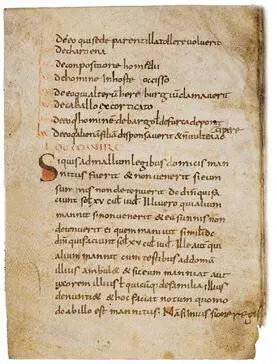 deeo quisede parentilla tollere voluerit
decharoena
deconpositione homicidii
dehomine inhoste occisso
deeo quialterum hereburgium clamaverit
decaballo excorticato
deeo q homine debargo ł defurca deponit
capere
deeo q alienā filiā disponsaverit &
DE MANNIRE
Siquis admallum legibus dominicis man
nitus fuerit & nonvenerit sieum
sunnis non detenuerit dc din qui fa
ciunt sol xv cul iud Illivero quialium
mannit sinonvenerit & eū sunnis non
detinuerit ei quem manuit simil dc
din qui faciunt sol xv cul iud Ille aut qui
alium mannit cum testibus addomū
illius ambul& & siceum manniat aut
uxorem illius ł quicūq; defamilia illius
denunti& & hoc faciat notum quomo
do abillo est mannitus; Nam si iniussione regis